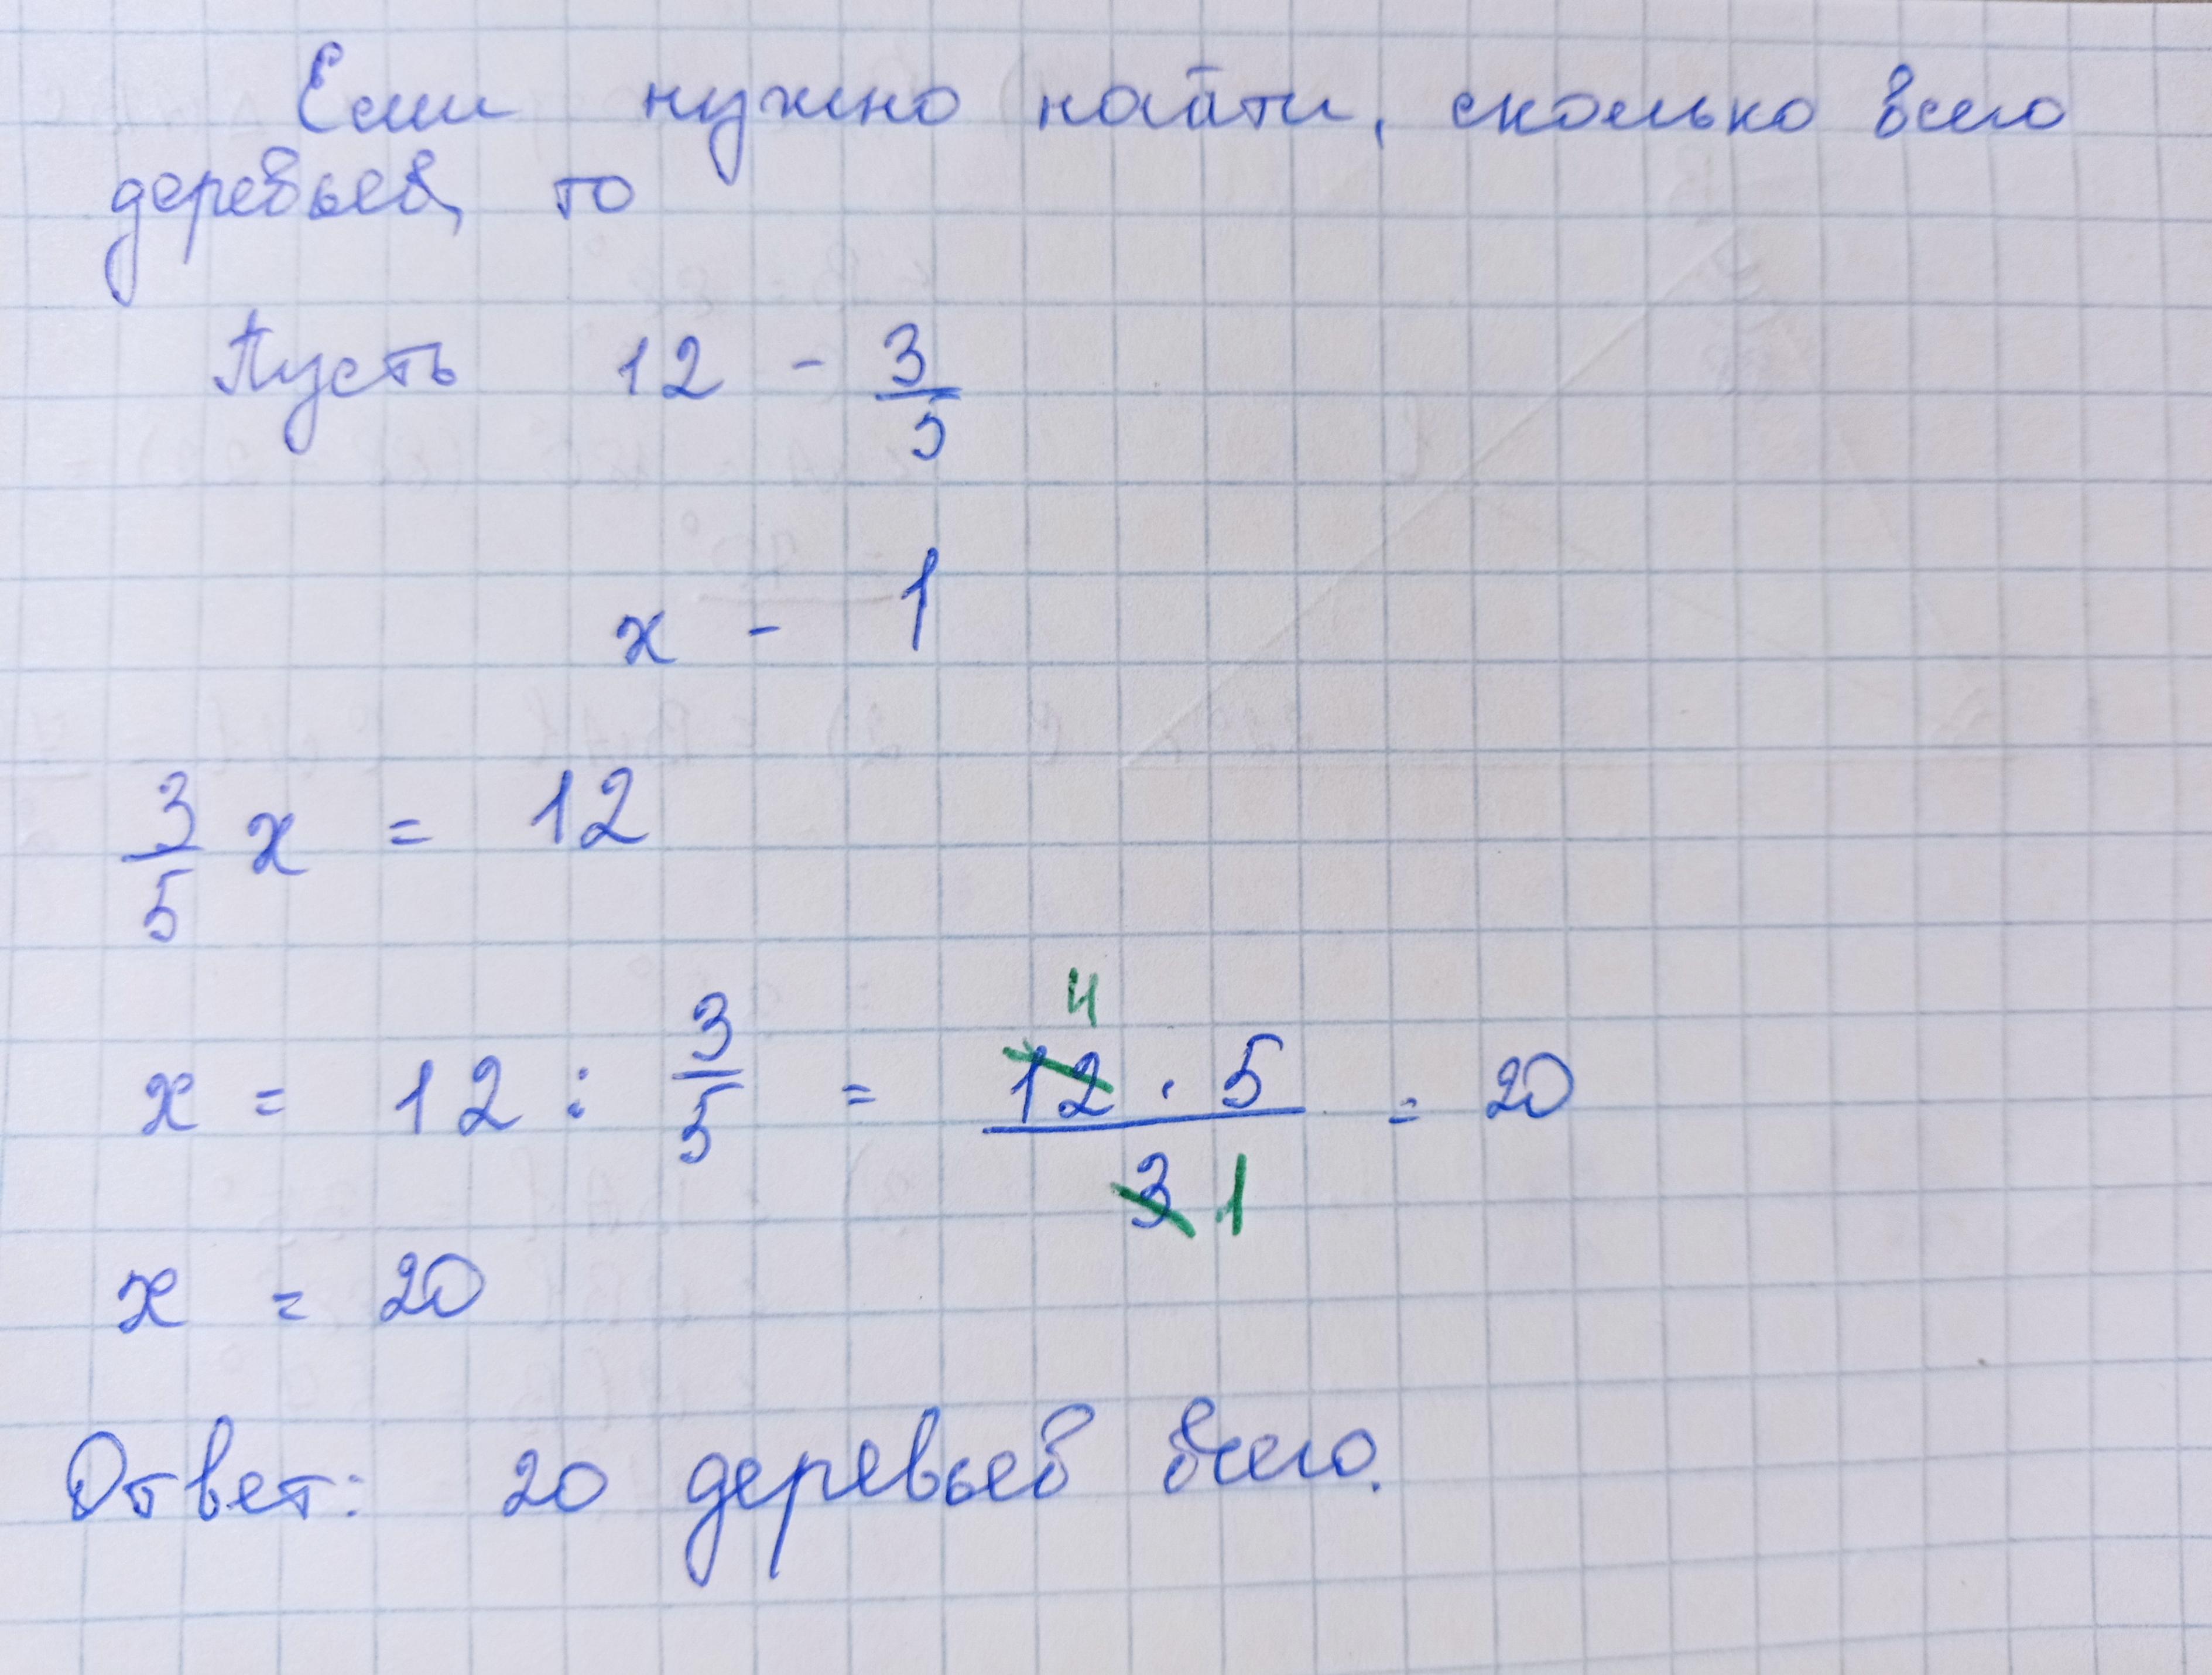 Если нужно найти, сколько всего
деревьев, то
Пусть 12 - 3/5
x - 1
3/5 x = 12
x = 12 : 3/5 = 12 4 · 5 / 3 1 = 20
x = 20
Ответ: 20 деревьев всего.